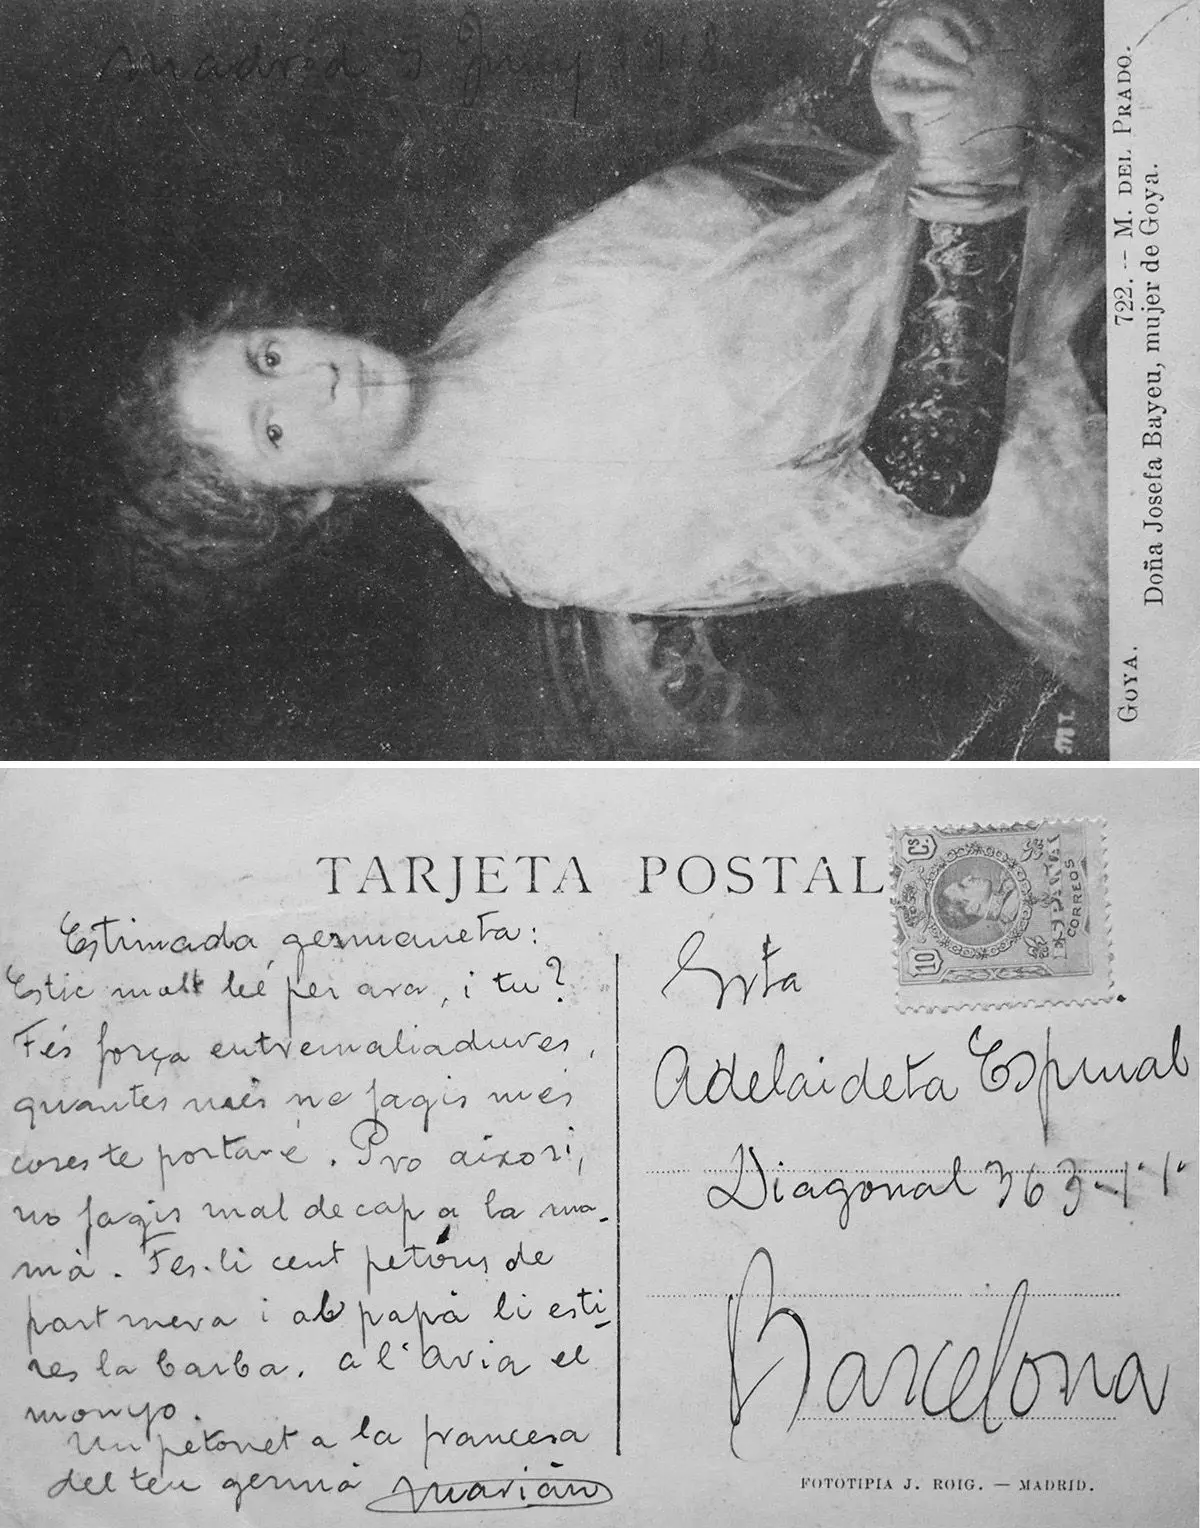 Madrid 3 Juny 1918
722. -- M. DEL PRADO.
GOYA. Doña Josefa Bayeu, mujer de Goya.
TARJETA POSTAL
10 Cs
ESPAÑA
CORREOS
Estimada germaneta:
Estic molt bé per ara, i tu?
Fés força entremaliadures,
quantes més ne fagis més
cores te portaré. Pro aixó si,
no fagis mal de cap a la ma-
mà. Fes-li cent petóns de
part meva i al papà li esti-
res la barba. a l'avia el
monyo.
Un petonet a la francesa
del teu germà Marián
Srta
Adelaideta Espinal
Diagonal 363-1-1
Barcelona
FOTOTIPIA J. ROIG. — MADRID.